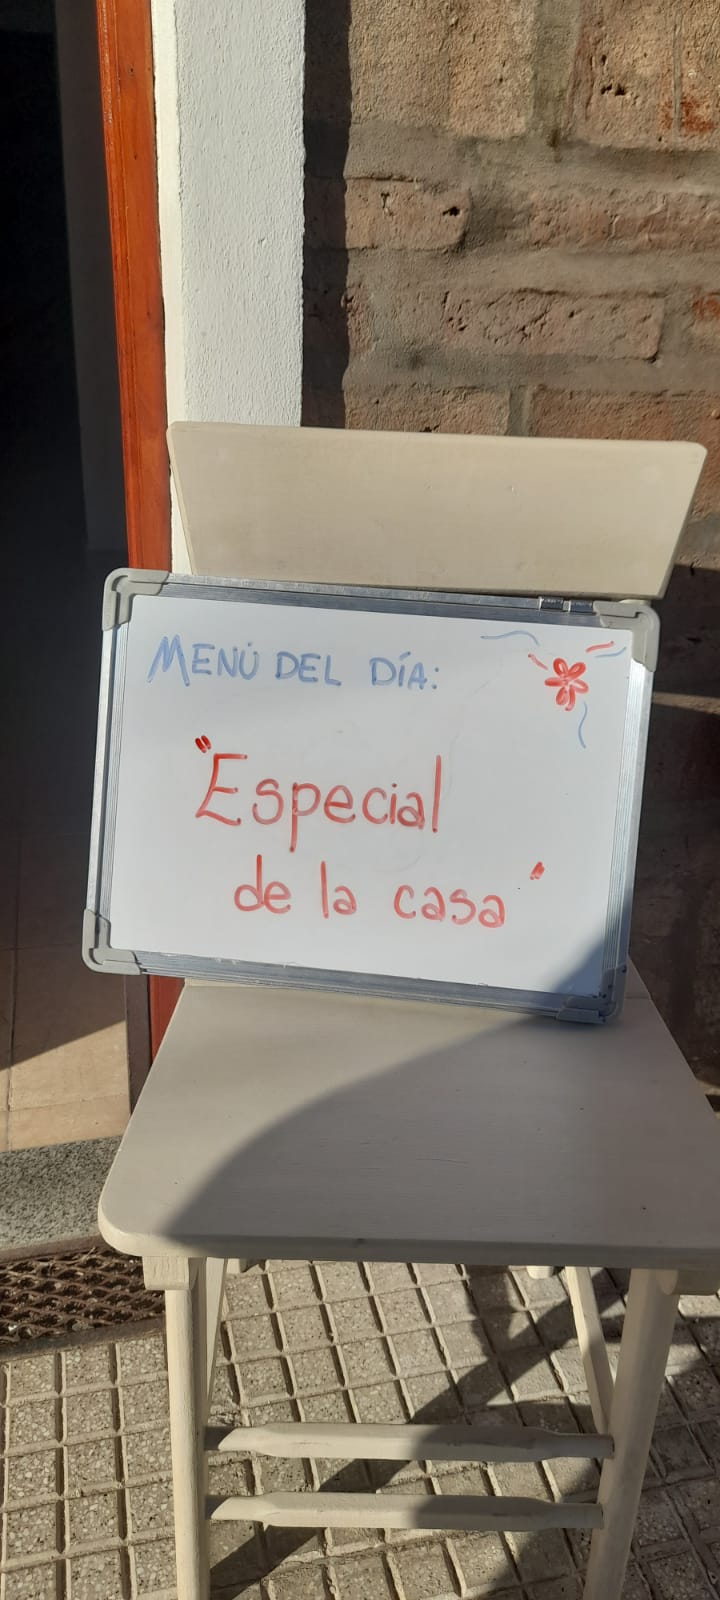 MENÚ DEL DÍA:
"Especial
de la casa"